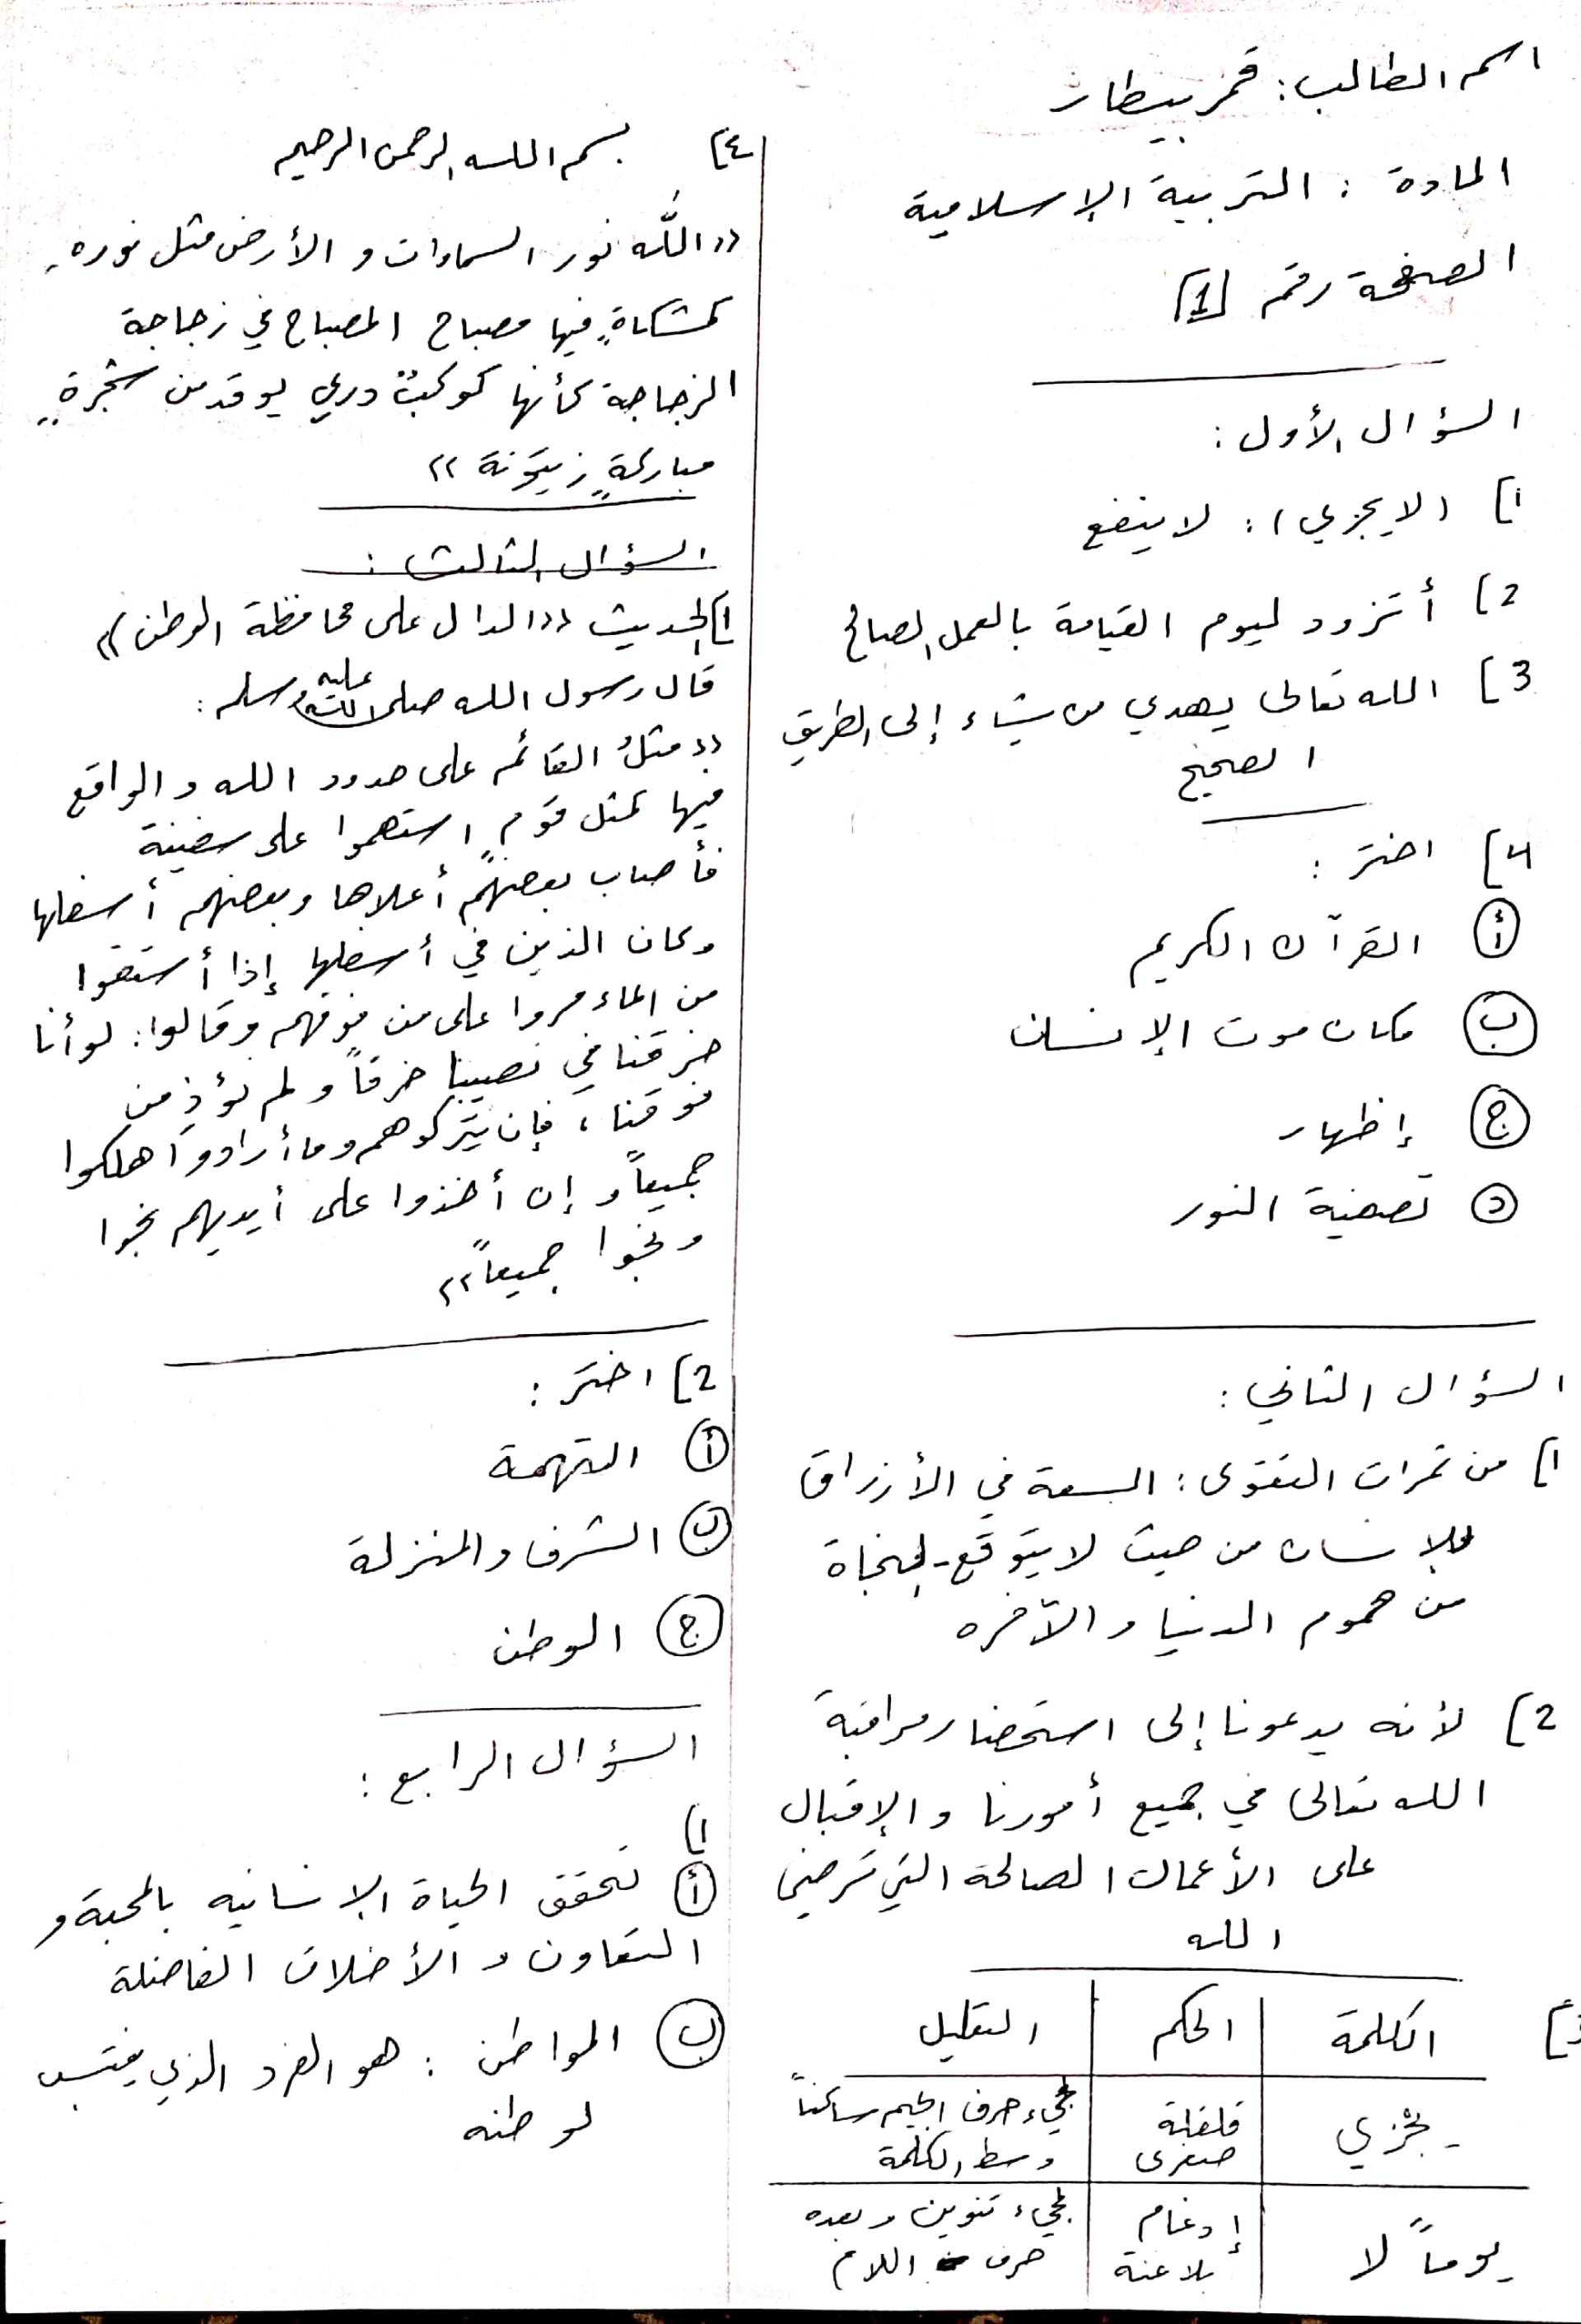 اسم الطالب: قمر بيطار
المادة : التربية الإسلامية
الصفحة رقم [1]
السؤال الأول :
1] (لا يجزي) : لا ينفع
2] أتزود ليوم القيامة بالعمل الصالح
3] الله تعالى يهدي من يشاء إلى الطريق
الصحيح
4] اختر :
أ القرآن الكريم
ب مكان موت الإنسان
ج إظهار
د تصفية النور
السؤال الثاني :
1] من ثمرات التقوى : السعة في الأرزاق
للإنسان من حيث لا يتوقع - النجاة
من هموم الدنيا والآخره
2] لأنه يدعونا إلى استحضار مراقبة
الله تعالى في جميع أمورنا والإقبال
على الأعمال الصالحة التي ترضي
الله
3] الكلمة الحكم التعليل
يجْزي قلقلة صغرى لمجيء حرف الجيم ساكناً
وسط الكلمة
يوماً لا إدغام بلا غنة لمجيء تنوين وبعده
حرف اللام
٤] بسم الله الرحمن الرحيم
((اللَّه نور السماوات و الأرض مثل نورهِ
كمشكاةٍ فيها مصباح المصباح في زجاجة
الزجاجة كأنها كوكبٌ دري يوقد من شجرةٍ
مباركةٍ زيتونة))
السؤال الثالث :
1] الحديث ((الدال على محافظة الوطن))
قال رسول الله صلى الله عليه وسلم :
((مثلُ القائم على حدود الله والواقع
فيها كمثل قومٍ استهموا على سفينة
فأصاب بعضهُم أعلاها وبعضهم أسفلها
وكان الذين في أسفلها إذا أستقوا
من الماء مروا على من فوقهم وقالوا: لو أنا
خرقنا في نصيبنا خرقاً ولم نؤذِ من
فوقنا ، فإن يتركوهم وما أرادوا هلكوا
جميعاً و إن أخذوا على أيديهم نجوا
ونجوا جميعاً))
2] اختر :
أ التهمة
ب الشرف والمنزلة
ج الوطن
السؤال الرابع :
1]
أ تحقق الحياة الإنسانيه بالمحبة و
التعاون و الأخلاق الفاضلة
ب المواطن : هو الفرد الذي ينتسب
لوطنه